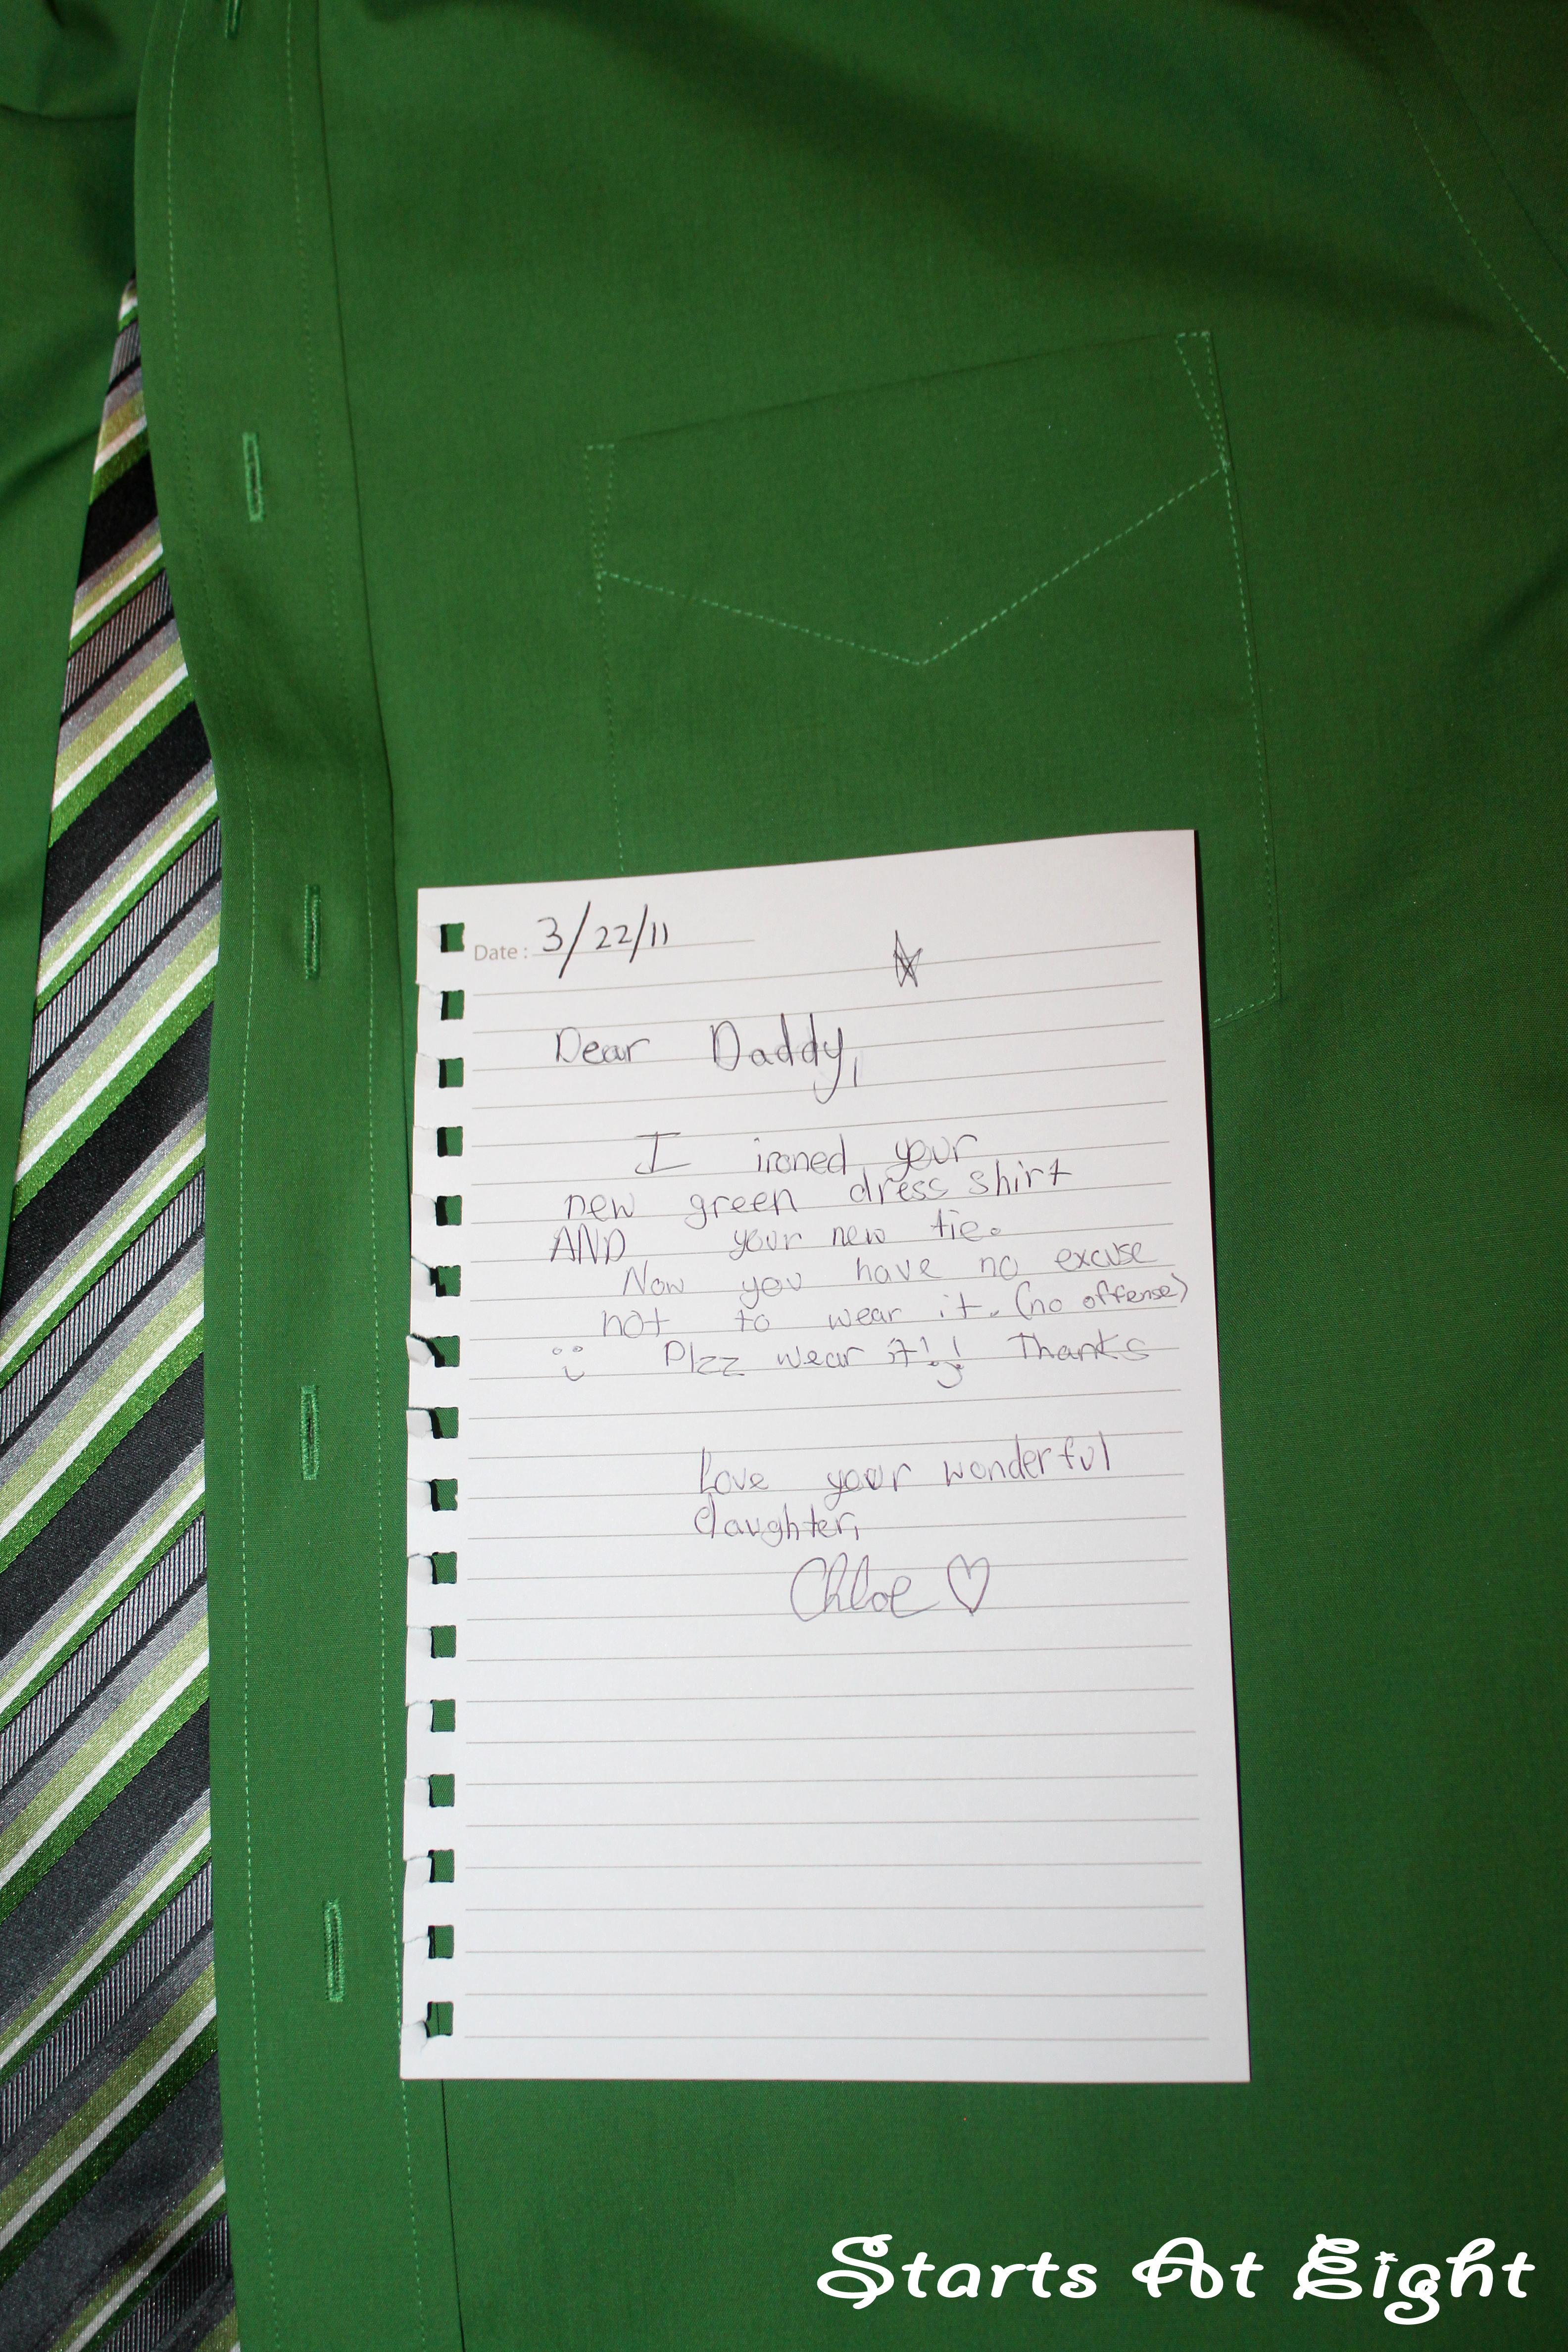 Date: 3/22/11
Dear Daddy,
I ironed your
new green dress shirt
AND your new tie.
Now you have no excuse
not to wear it. (no offense)
Plzz wear it!! Thanks
Love your wonderful
daughter,
Chloe
Starts At Eight